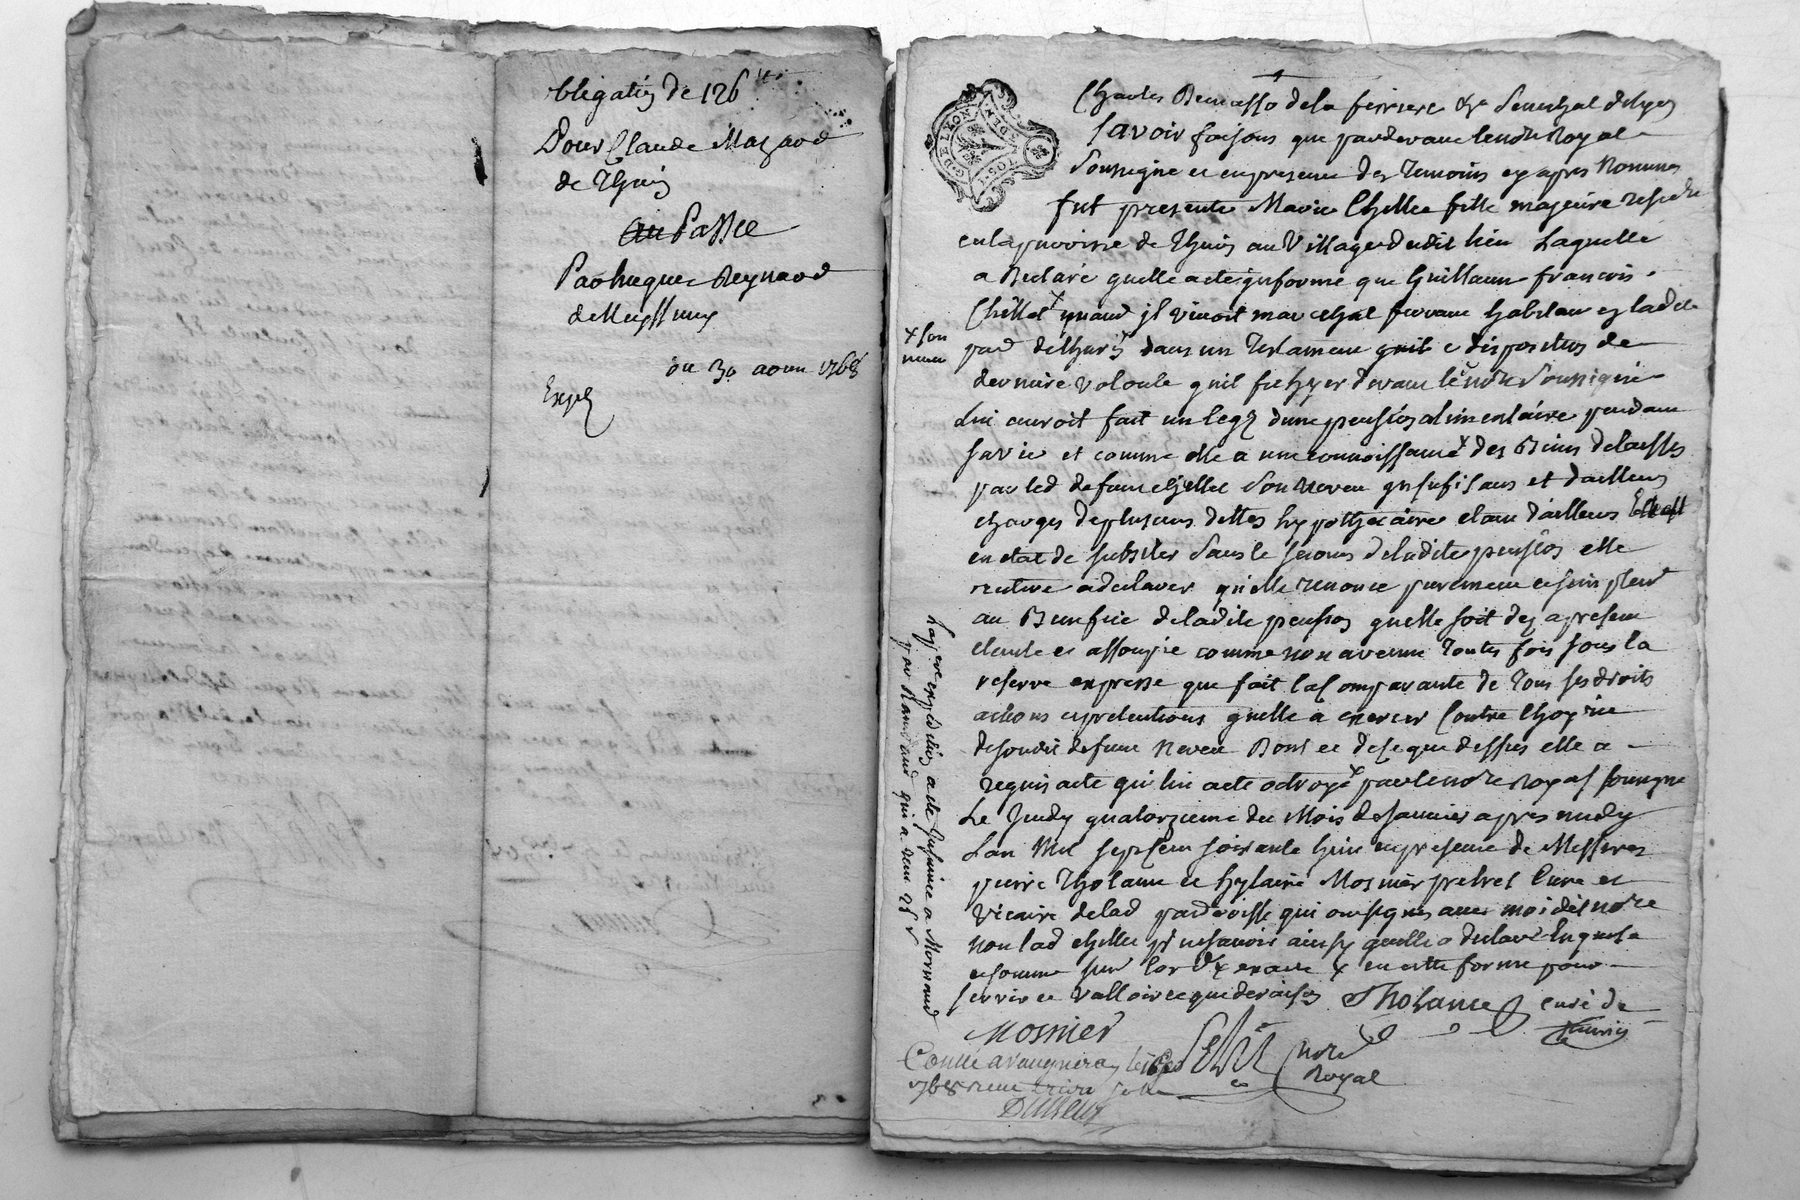 obligation de 126 ll.
Pour Claude Mazard
de Thurin
Passée
Par hugue Reynard
de Messimy
du 30 aoust 1768
Exped
G. DE LYON
DEN
Charles Demasso de la ferriere Senechal de lyon
Savoir faisons que pardevant le notre Royal
Soussigné et en presence des temoins cy apres Nommes
fut presente Marie Chellet fille majeure reside
en la parroisse de Thurin au Village dudit lieu Laquelle
a declaré quelle a ete informé que Guillaume francois
Chellet quand il vivoit marechal ferrant habitant en ladite
par de thurin dans un testament et disposition de
x son
neveu
derniere volonte quil fit devant le notre Soussigné
Lui auroit fait un legz dune pension alimentaire pendant
sa vie et comme elle a une connoissance x des Biens delaisses
par led defunt chellet Son Neveu insufisans et dailleurs
charges de plusieurs dettes hypothecaires etant dailleurs
en etat de subsister Sans le secours de ladite pension elle
a declarer qu'elle renonce purement et simplemt
au Benefice de ladite pension quelle soit des apresent
eteinte et assoupie comme non avenue toutes fois sous la
reserve expresse que fait la Comparante de tous ses droits
actions et pretentions quelle a exercer Contre lhoyrie
de sondit defunt Neveu Dont et de ce que dessus elle a
requis acte qui lui a ete octroyé x par le notre Royal soussigné
Le Jeudy quatorzieme du Mois de Janvier apres midy
Lan Mil sept cent soixante huit en presence de Messires
pierre Tholance et hylaire Mosnier pretres Curé et
Vicaire de lad parroisse qui ont signés avec moi dit notre
non lad chellet pr ne savoir ainsy quelle a declaré Enquise
et sommé sur lor x en cette forme pour
servir et valloir ce que de raison Tholance curé de
Thurin
Mosnier
notre
Royal
Conllé a vaugneray le
1768 reçu treize sols
Dutreul
La pre expedition a ete fournie a Mornand
par Renaud qui a